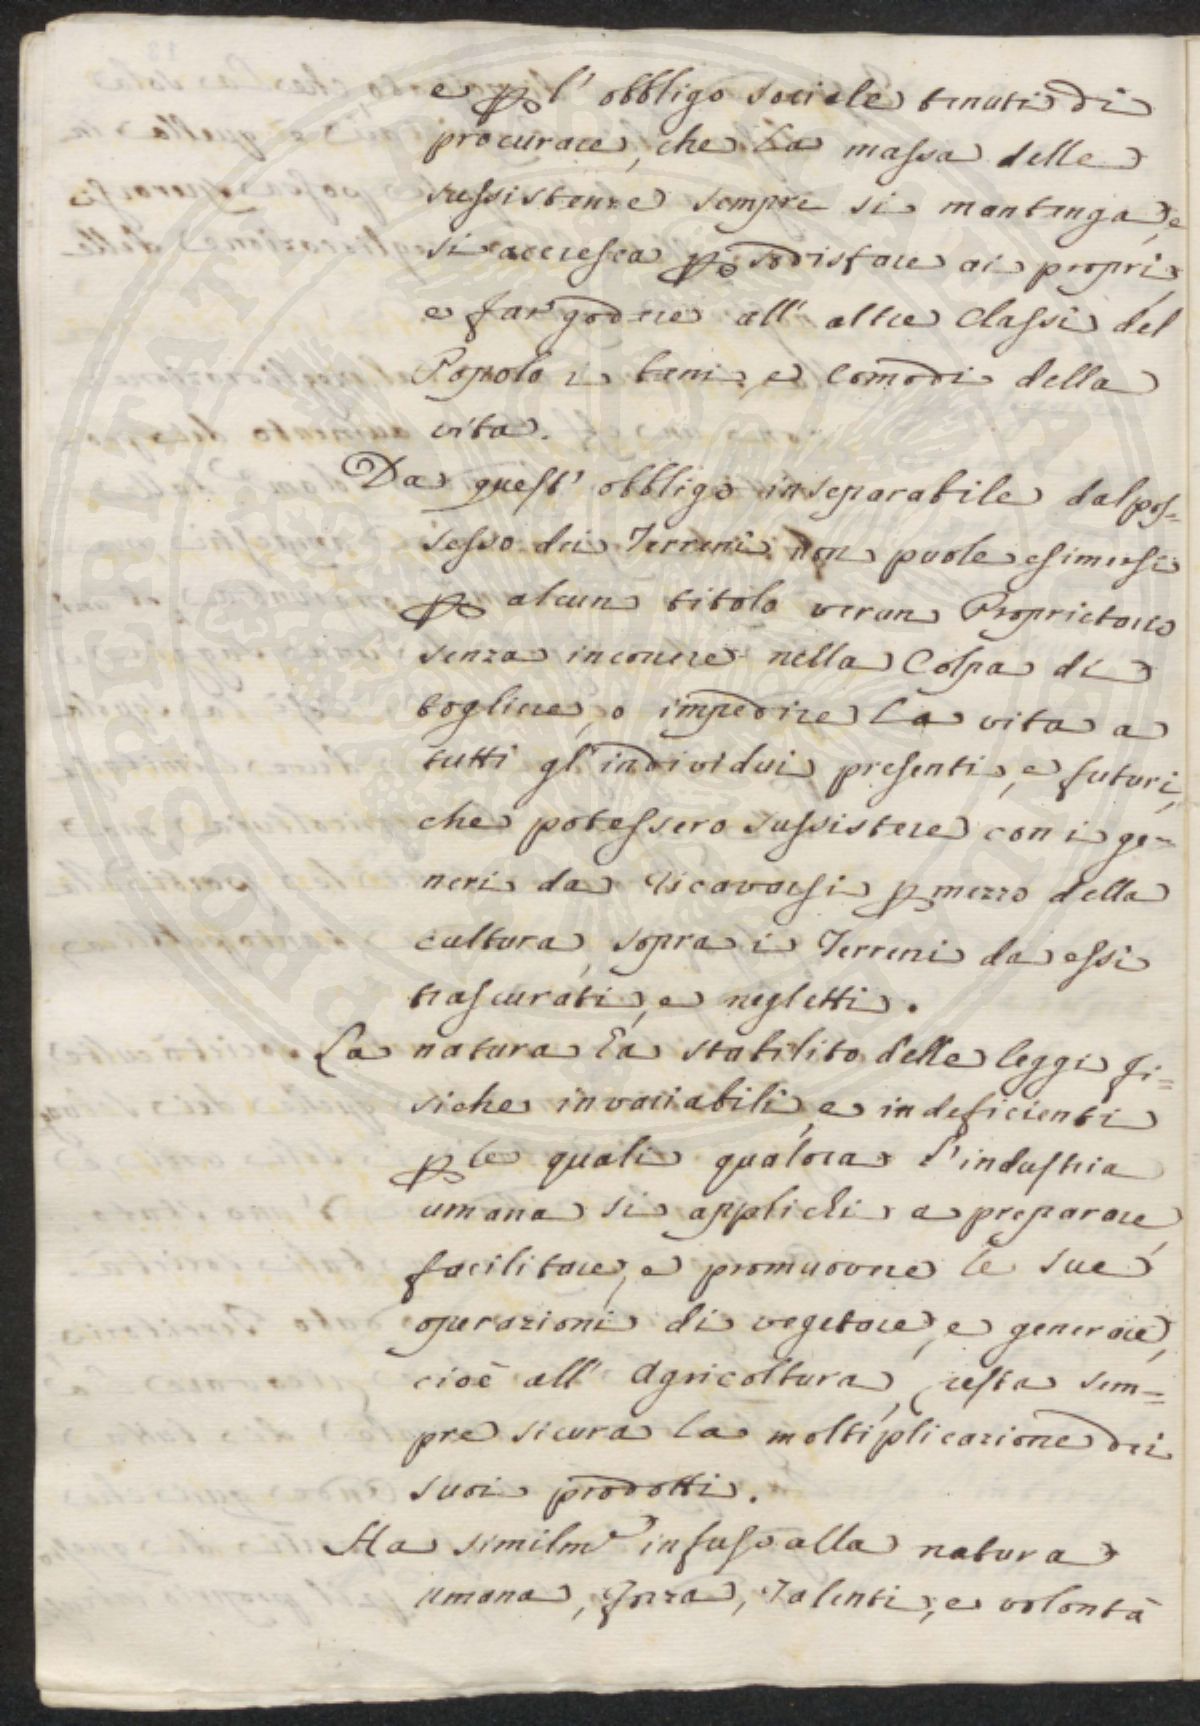 e p l' obbligo sociale tenuti di
procurare, che la massa delle
sussistenze sempre si mantenga, e
si accresca p sodisfare ai propri,
e far godere all' altre Classi del
Popolo i beni, e Comodi della
vita.
Da quest' obbligo inseparabile dal pos=
sesso dei Terreni non puole esimersi
p alcun titolo verun Proprietario
senza incorrere nella Colpa di
togliere, o impedire la vita a
tutti gl' individui presenti, e futuri,
che potessero sussistere con i ge=
neri da ricavarsi p mezzo della
cultura, sopra i Terreni da essi
trascurati, e negletti.
La natura ha stabilito delle leggi fi=
siche invariabili, e indeficienti
p le quali qualora l' industria
umana si applichi a preparare,
facilitare, e promuovere le sue
operazioni di vegetare, e generare,
cioè all' Agricoltura, resta sem=
pre sicura la moltiplicazione dei
suoi prodotti.
Ha similmte infuso alla natura
umana, forza, Talenti, e volontà